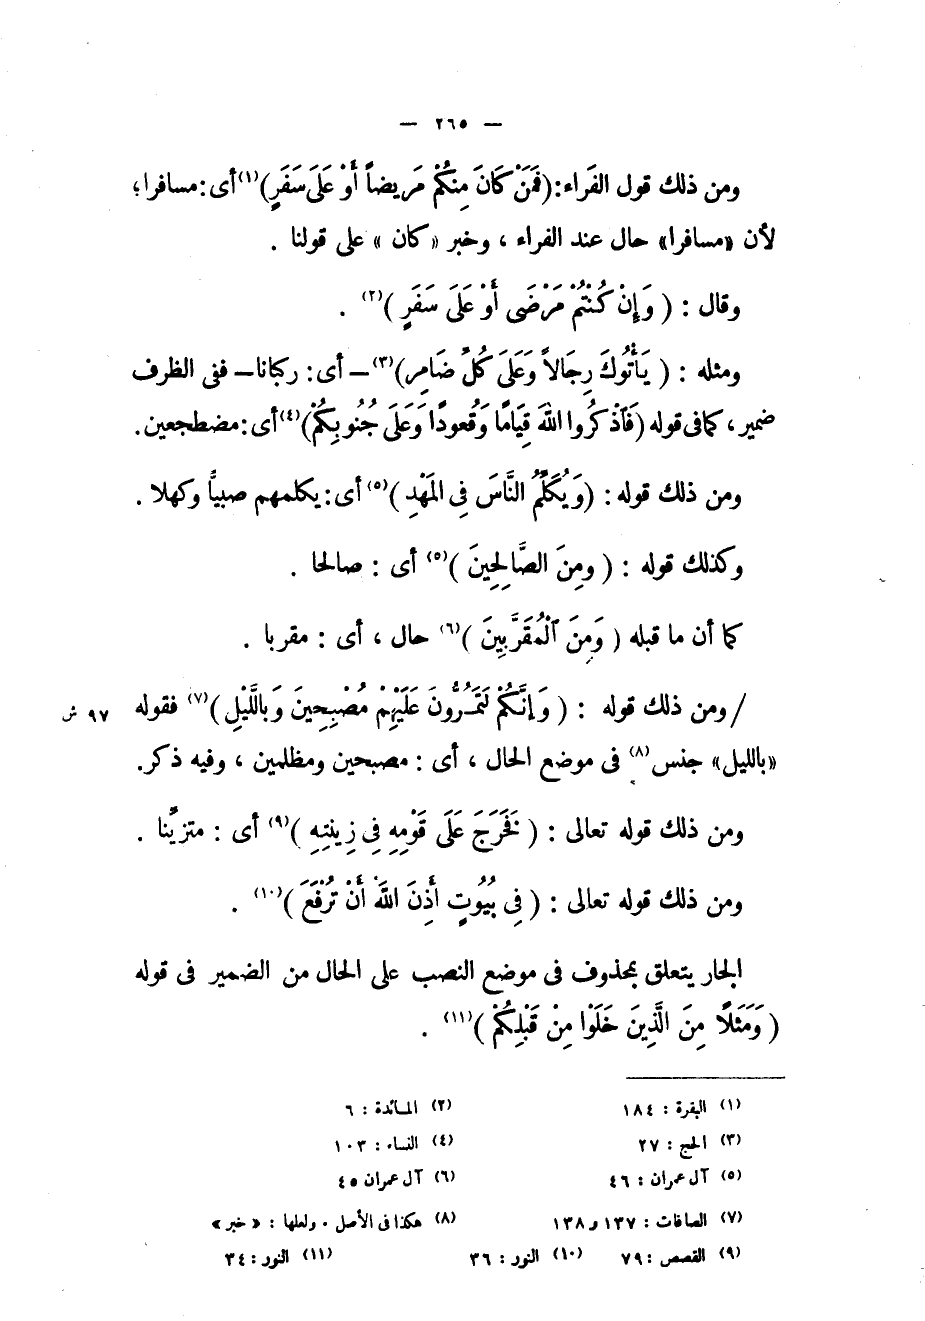 — ٢٦٥ —
ومن ذلك قول الفراء: (فَمَنْ كَانَ مِنكُمْ مَرِيضاً أَوْ عَلَى سَفَرٍ)(١) أى: مسافرا؛
لأن «مسافرا» حال عند الفراء ، وخبر «كان» على قولنا .
وقال : ( وَإِنْ كُنْتُمْ مَرْضَى أَوْ عَلَى سَفَرٍ )(٢) .
ومثله : ( يَأْتُوكَ رِجَالاً وَعَلَى كُلِّ ضَامِرٍ)(٣) — أى: ركبانا — ففى الظرف
ضمير ، كما فى قوله (فَاَذْكُرُوا اللهَ قِيَامًا وَقُعودًا وَعَلَى جُنُوبِكُمْ)(٤) أى: مضطجعين.
ومن ذلك قوله : (وَيُكَلِّمُ النَّاسَ فِى المَهْدِ )(٥) أى: يكلمهم صبيًّا وكهلا .
وكذلك قوله : ( ومِنَ الصَّالِحِينَ )(٥) أى : صالحا .
كما أن ما قبله ( وَمِنَ ٱلْمُقَرَّبِينَ )(٦) حال ، أى : مقربا .
/ ومن ذلك قوله : ( وَإِنَّكُمْ لَتَمُرُّونَ عَلَيْهِمْ مُصْبِحِينَ وَبِاللَّيْلِ )(٧) فقوله ٩٧ ش
«بالليل» جنس(٨) فى موضع الحال ، أى : مصبحين ومظلمين ، وفيه ذكر.
ومن ذلك قوله تعالى : ( فَخَرَجَ عَلَى قَوْمِهِ فِى زِينَتِهِ )(٩) أى : متزيِّنا .
ومن ذلك قوله تعالى : ( فِى بُيُوتٍ أَذِنَ اللهُ أَنْ تُرْفَعَ )(١٠) .
الجار يتعلق بمحذوف فى موضع النصب على الحال من الضمير فى قوله
( وَمَثَلاً مِنَ الَّذِينَ خَلَوْا مِنْ قَبْلِكُمْ )(١١) .
(١) البقرة : ١٨٤ (٢) المائدة : ٦
(٣) الحج : ٢٧ (٤) النساء : ١٠٣
(٥) آل عمران : ٤٦ (٦) آل عمران ٤٥
(٧) الصافات : ١٣٧ و ١٣٨ (٨) هكذا فى الأصل . ولعلها : «خبر»
(٩) القصص : ٧٩ (١٠) النور : ٣٦ (١١) النور : ٣٤